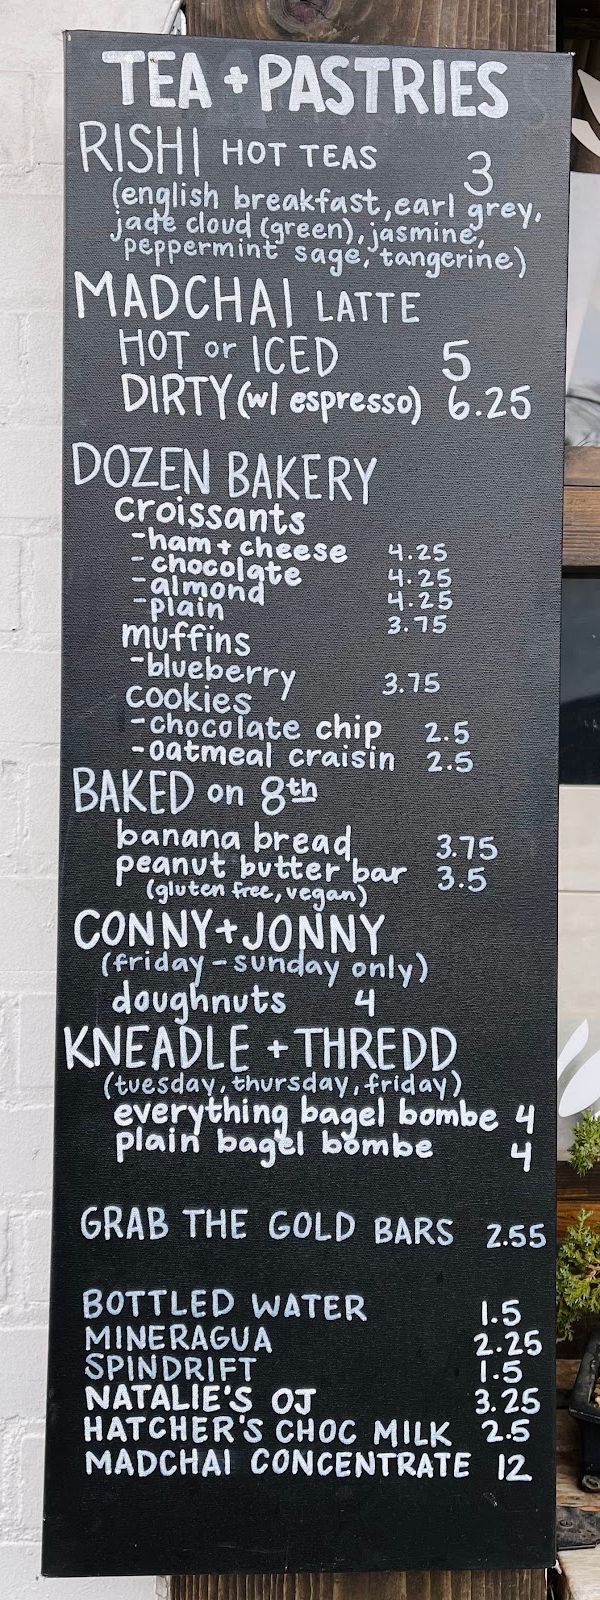 TEA + PASTRIES
RISHI HOT TEAS 3
(english breakfast, earl grey,
jade cloud (green), jasmine,
peppermint sage, tangerine)
MADCHAI LATTE
HOT or ICED 5
DIRTY (w/ espresso) 6.25
DOZEN BAKERY
croissants
-ham + cheese 4.25
-chocolate 4.25
-almond 4.25
-plain 3.75
muffins
-blueberry 3.75
cookies
-chocolate chip 2.5
-oatmeal craisin 2.5
BAKED on 8th
banana bread 3.75
peanut butter bar 3.5
(gluten free, vegan)
CONNY + JONNY
(friday - sunday only)
doughnuts 4
KNEADLE + THREDD
(tuesday, thursday, friday)
everything bagel bombe 4
plain bagel bombe 4
GRAB THE GOLD BARS 2.55
BOTTLED WATER 1.5
MINERAGUA 2.25
SPINDRIFT 1.5
NATALIE'S OJ 3.25
HATCHER'S CHOC MILK 2.5
MADCHAI CONCENTRATE 12